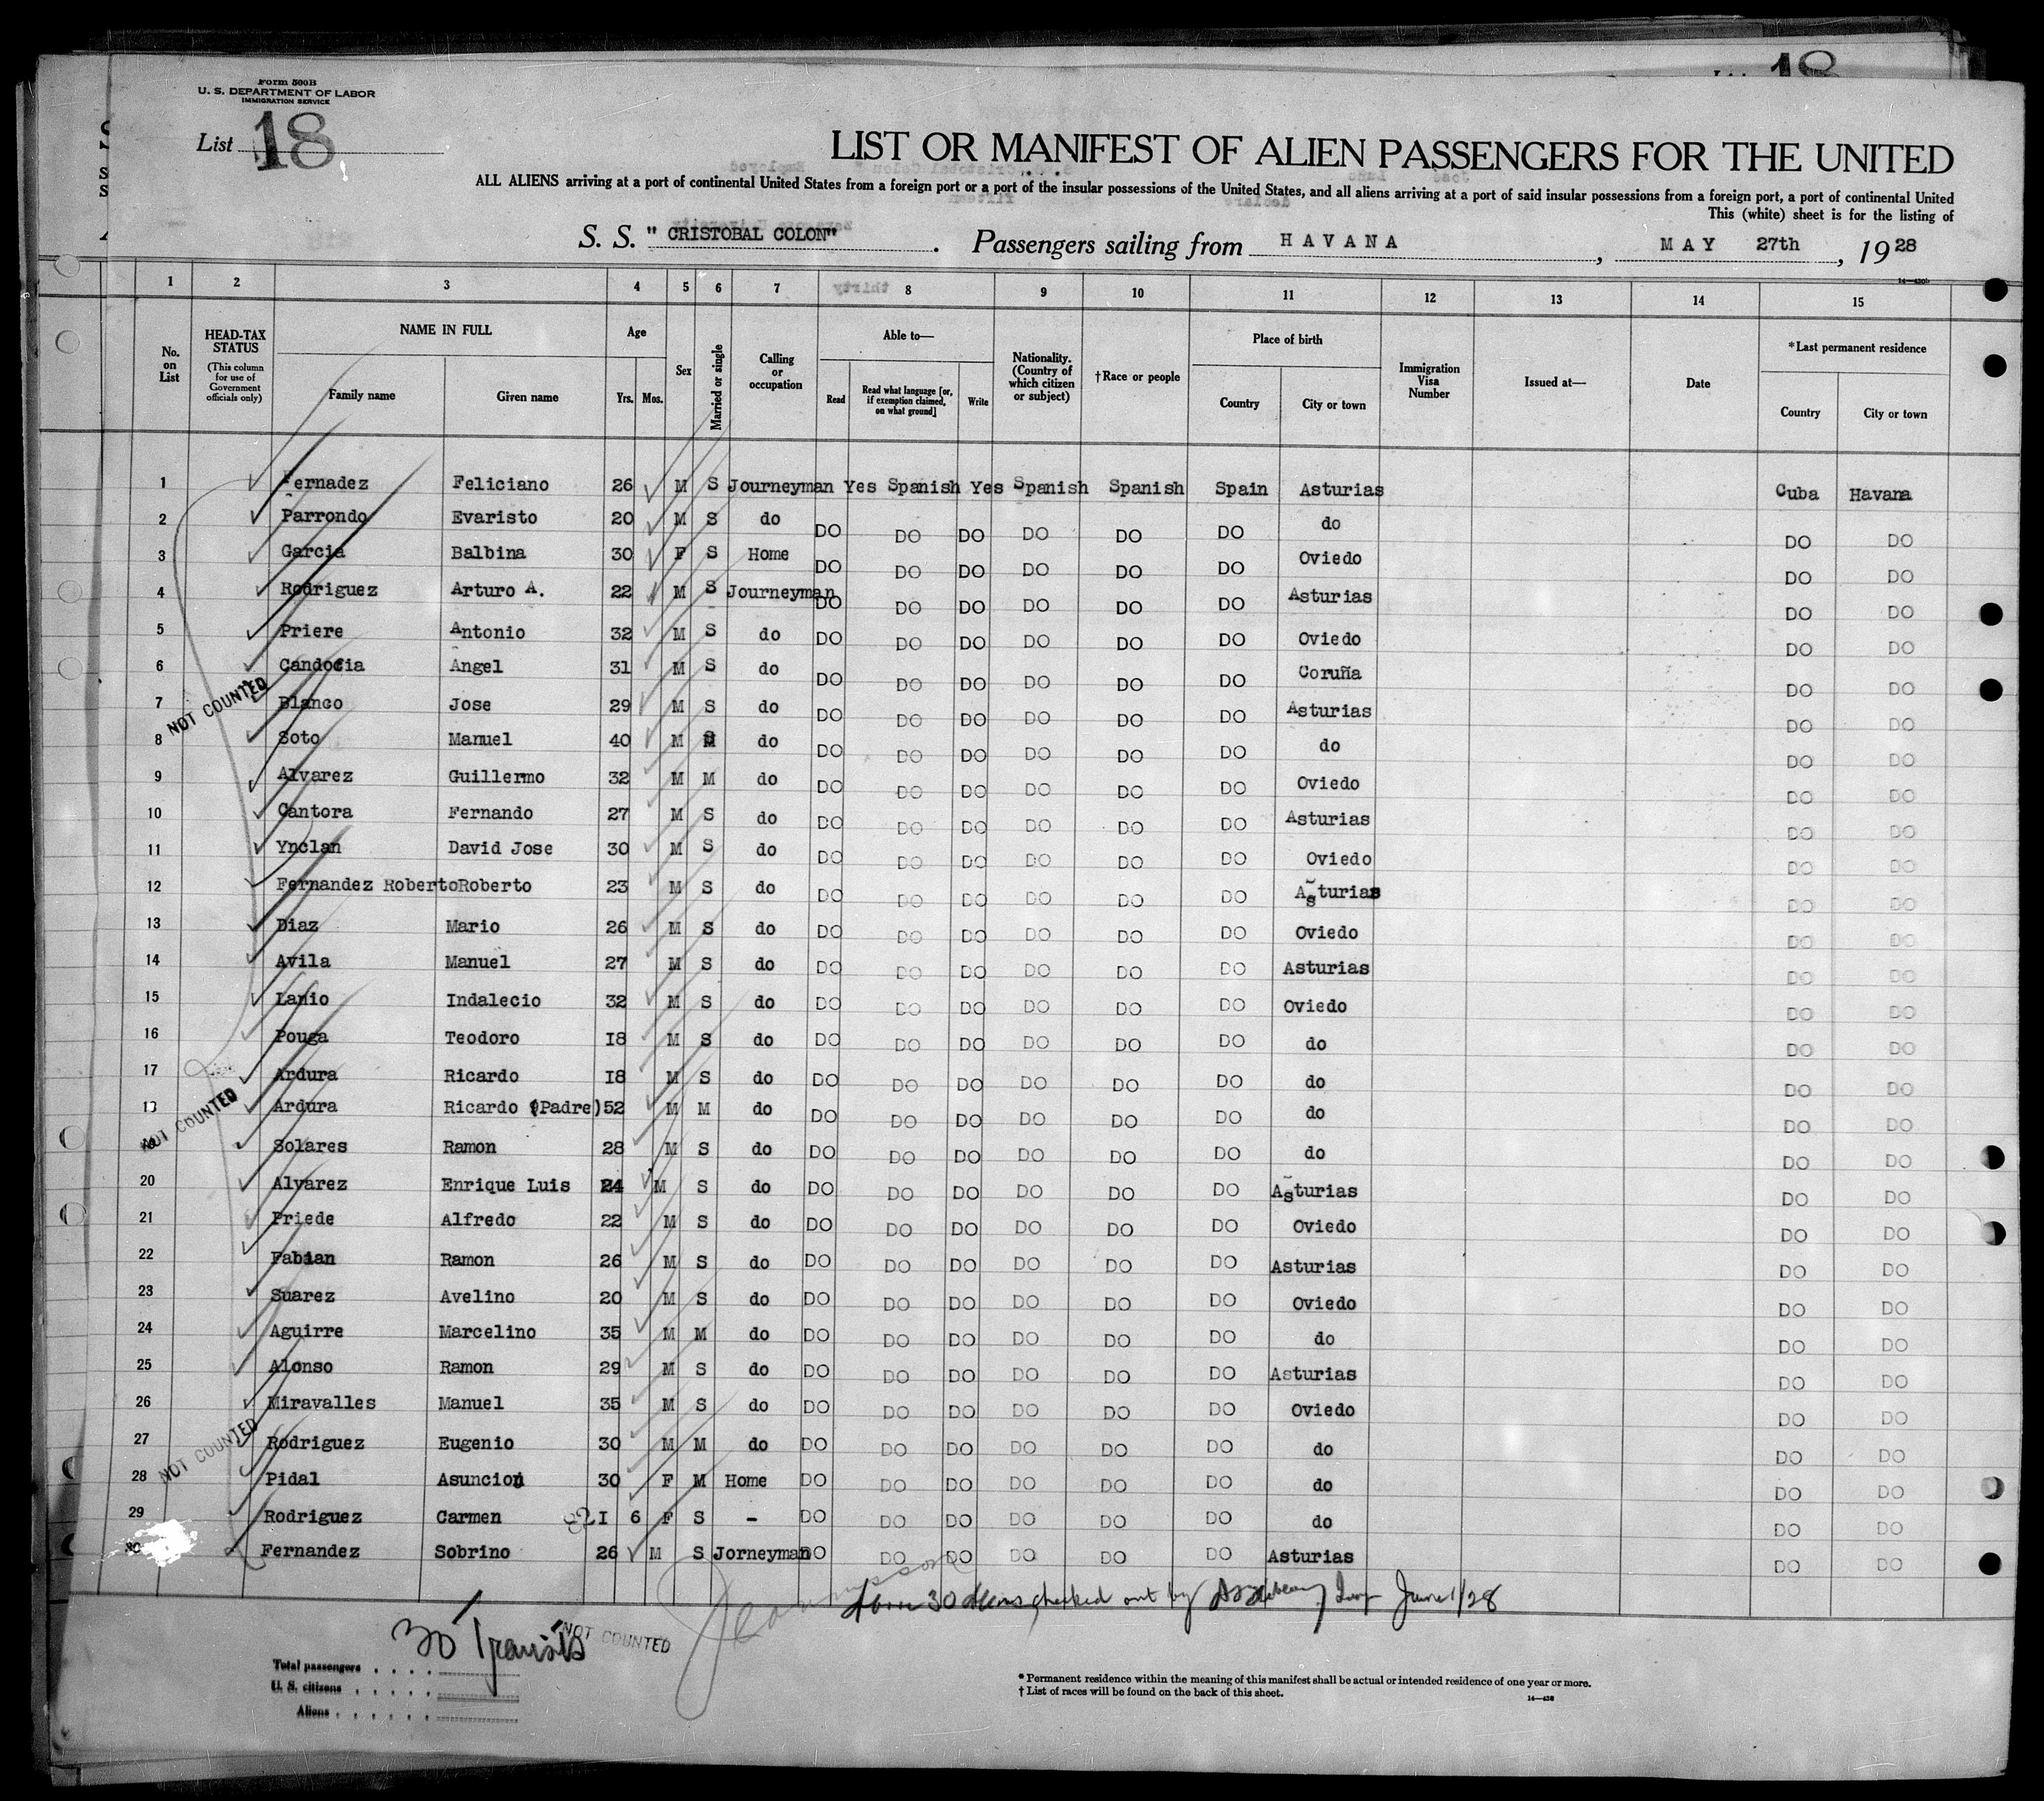 Form 500B
U. S. DEPARTMENT OF LABOR
IMMIGRATION SERVICE
List 18
18
LIST OR MANIFEST OF ALIEN PASSENGERS FOR THE UNITED
ALL ALIENS arriving at a port of continental United States from a foreign port or a port of the insular possessions of the United States, and all aliens arriving at a port of said insular possessions from a foreign port, a port of continental United
This (white) sheet is for the listing of
S. S. "CRISTOBAL COLON". Passengers sailing from HAVANA, MAY 27th, 1928
1 2 3 4 5 6 7 8 9 10 11 12 13 14 15
No. on List
HEAD-TAX STATUS (This column for use of Government officials only)
NAME IN FULL Family name Given name
Age Yrs. Mos.
Sex
Married or single
Calling or occupation
Able to— Read Read what language [or, if exemption claimed, on what ground] Write
Nationality. (Country of which citizen or subject)
†Race or people
Place of birth Country City or town
Immigration Visa Number
Issued at—
Date
*Last permanent residence Country City or town
1 Fernadez Feliciano 26 M S Journeyman Yes Spanish Yes Spanish Spanish Spain Asturias Cuba Havana
2 Parrondo Evaristo 20 M S do DO DO DO DO DO DO do DO DO
3 Garcia Balbina 30 F S Home DO DO DO DO DO DO Oviedo DO DO
4 Rodriguez Arturo A. 22 M S Journeyman DO DO DO DO DO DO Asturias DO DO
5 Priere Antonio 32 M S do DO DO DO DO DO DO Oviedo DO DO
6 Candocia Angel 31 M S do DO DO DO DO DO DO Coruña DO DO
7 Blanco Jose 29 M S do DO DO DO DO DO DO Asturias DO DO
NOT COUNTED
8 Soto Manuel 40 M do DO DO DO DO DO DO do DO DO
9 Alvarez Guillermo 32 M M do DO DO DO DO DO DO Oviedo DO DO
10 Cantora Fernando 27 M S do DO DO DO DO DO DO Asturias DO DO
11 Ynclan David Jose 30 M S do DO DO DO DO DO DO Oviedo DO DO
12 Fernandez Roberto Roberto 23 M S do DO DO DO DO DO DO Asturias DO DO
13 Diaz Mario 26 M S do DO DO DO DO DO DO Oviedo DO DO
14 Avila Manuel 27 M S do DO DO DO DO DO DO Asturias DO DO
15 Lanio Indalecio 32 M S do DO DO DO DO DO DO Oviedo DO DO
16 Pouga Teodoro 18 M S do DO DO DO DO DO DO do DO DO
17 Ardura Ricardo 18 M S do DO DO DO DO DO DO do DO DO
18 Ardura Ricardo (Padre) 52 M M do DO DO DO DO DO DO do DO DO
NOT COUNTED
19 Solares Ramon 28 M S do DO DO DO DO DO DO do DO DO
20 Alvarez Enrique Luis 24 M S do DO DO DO DO DO DO Asturias DO DO
21 Priede Alfredo 22 M S do DO DO DO DO DO DO Oviedo DO DO
22 Fabian Ramon 26 M S do DO DO DO DO DO DO Asturias DO DO
23 Suarez Avelino 20 M S do DO DO DO DO DO DO Oviedo DO DO
24 Aguirre Marcelino 35 M M do DO DO DO DO DO DO do DO DO
25 Alonso Ramon 29 M S do DO DO DO DO DO DO Asturias DO DO
26 Miravalles Manuel 35 M S do DO DO DO DO DO DO Oviedo DO DO
27 Rodriguez Eugenio 30 M M do DO DO DO DO DO DO do DO DO
NOT COUNTED
28 Pidal Asuncion 30 F M Home DO DO DO DO DO DO do DO DO
29 Rodriguez Carmen 1 6 F S - DO DO DO DO DO DO do DO DO
30 Fernandez Sobrino 26 M S Jorneyman DO DO DO DO DO DO Asturias DO DO
30 aliens checked out by June 1/28
30 Transits
NOT COUNTED
Total passengers
U. S. citizens
Aliens
* Permanent residence within the meaning of this manifest shall be actual or intended residence of one year or more.
† List of races will be found on the back of this sheet.
14—430